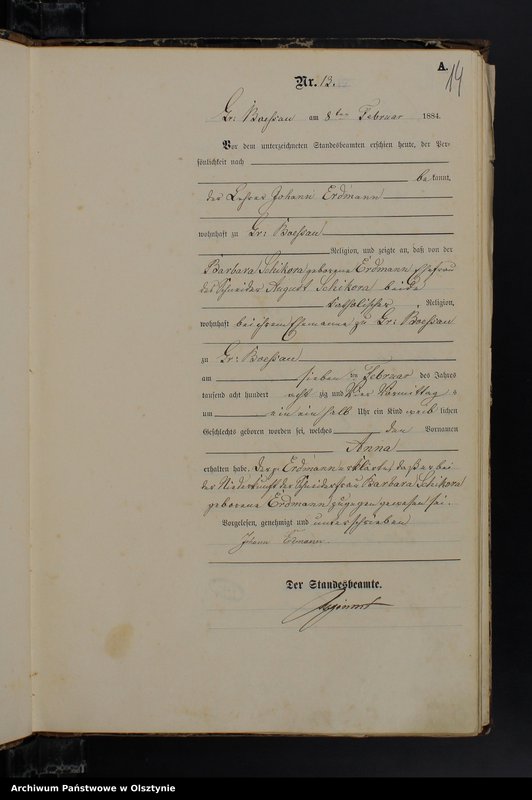 A.
14
Nr. 13.
Gr: Boessau am 8ten Februar 1884.
Vor dem unterzeichneten Standesbeamten erschien heute, der Per-
sönlichkeit nach
be kannt,
der Johann Erdmann
wohnhaft zu Gr: Boessau
Religion, und zeigte an, daß von der
Barbara Schikora geborene Erdmann Ehefrau
des Schneider August Schikora beide
katholischer Religion,
wohnhaft bei ihrem Ehemanne zu Gr: Boessau
zu Gr: Boessau
am sieben ten Februar des Jahres
tausend acht hundert acht zig und vier Vormittag s
um ein ein halb Uhr ein Kind weib lichen
Geschlechts geboren worden sei, welches den Vornamen
Anna
erhalten habe. Der p. Erdmann erklärte, daß er bei
der Niederkunft der Schneiderfrau Barbara Schikora
geborene Erdmann zugegen gewesen sei.
Vorgelesen, genehmigt und unterschrieben
Johann Erdmann.
Der Standesbeamte.
Archiwum Państwowe w Olsztynie